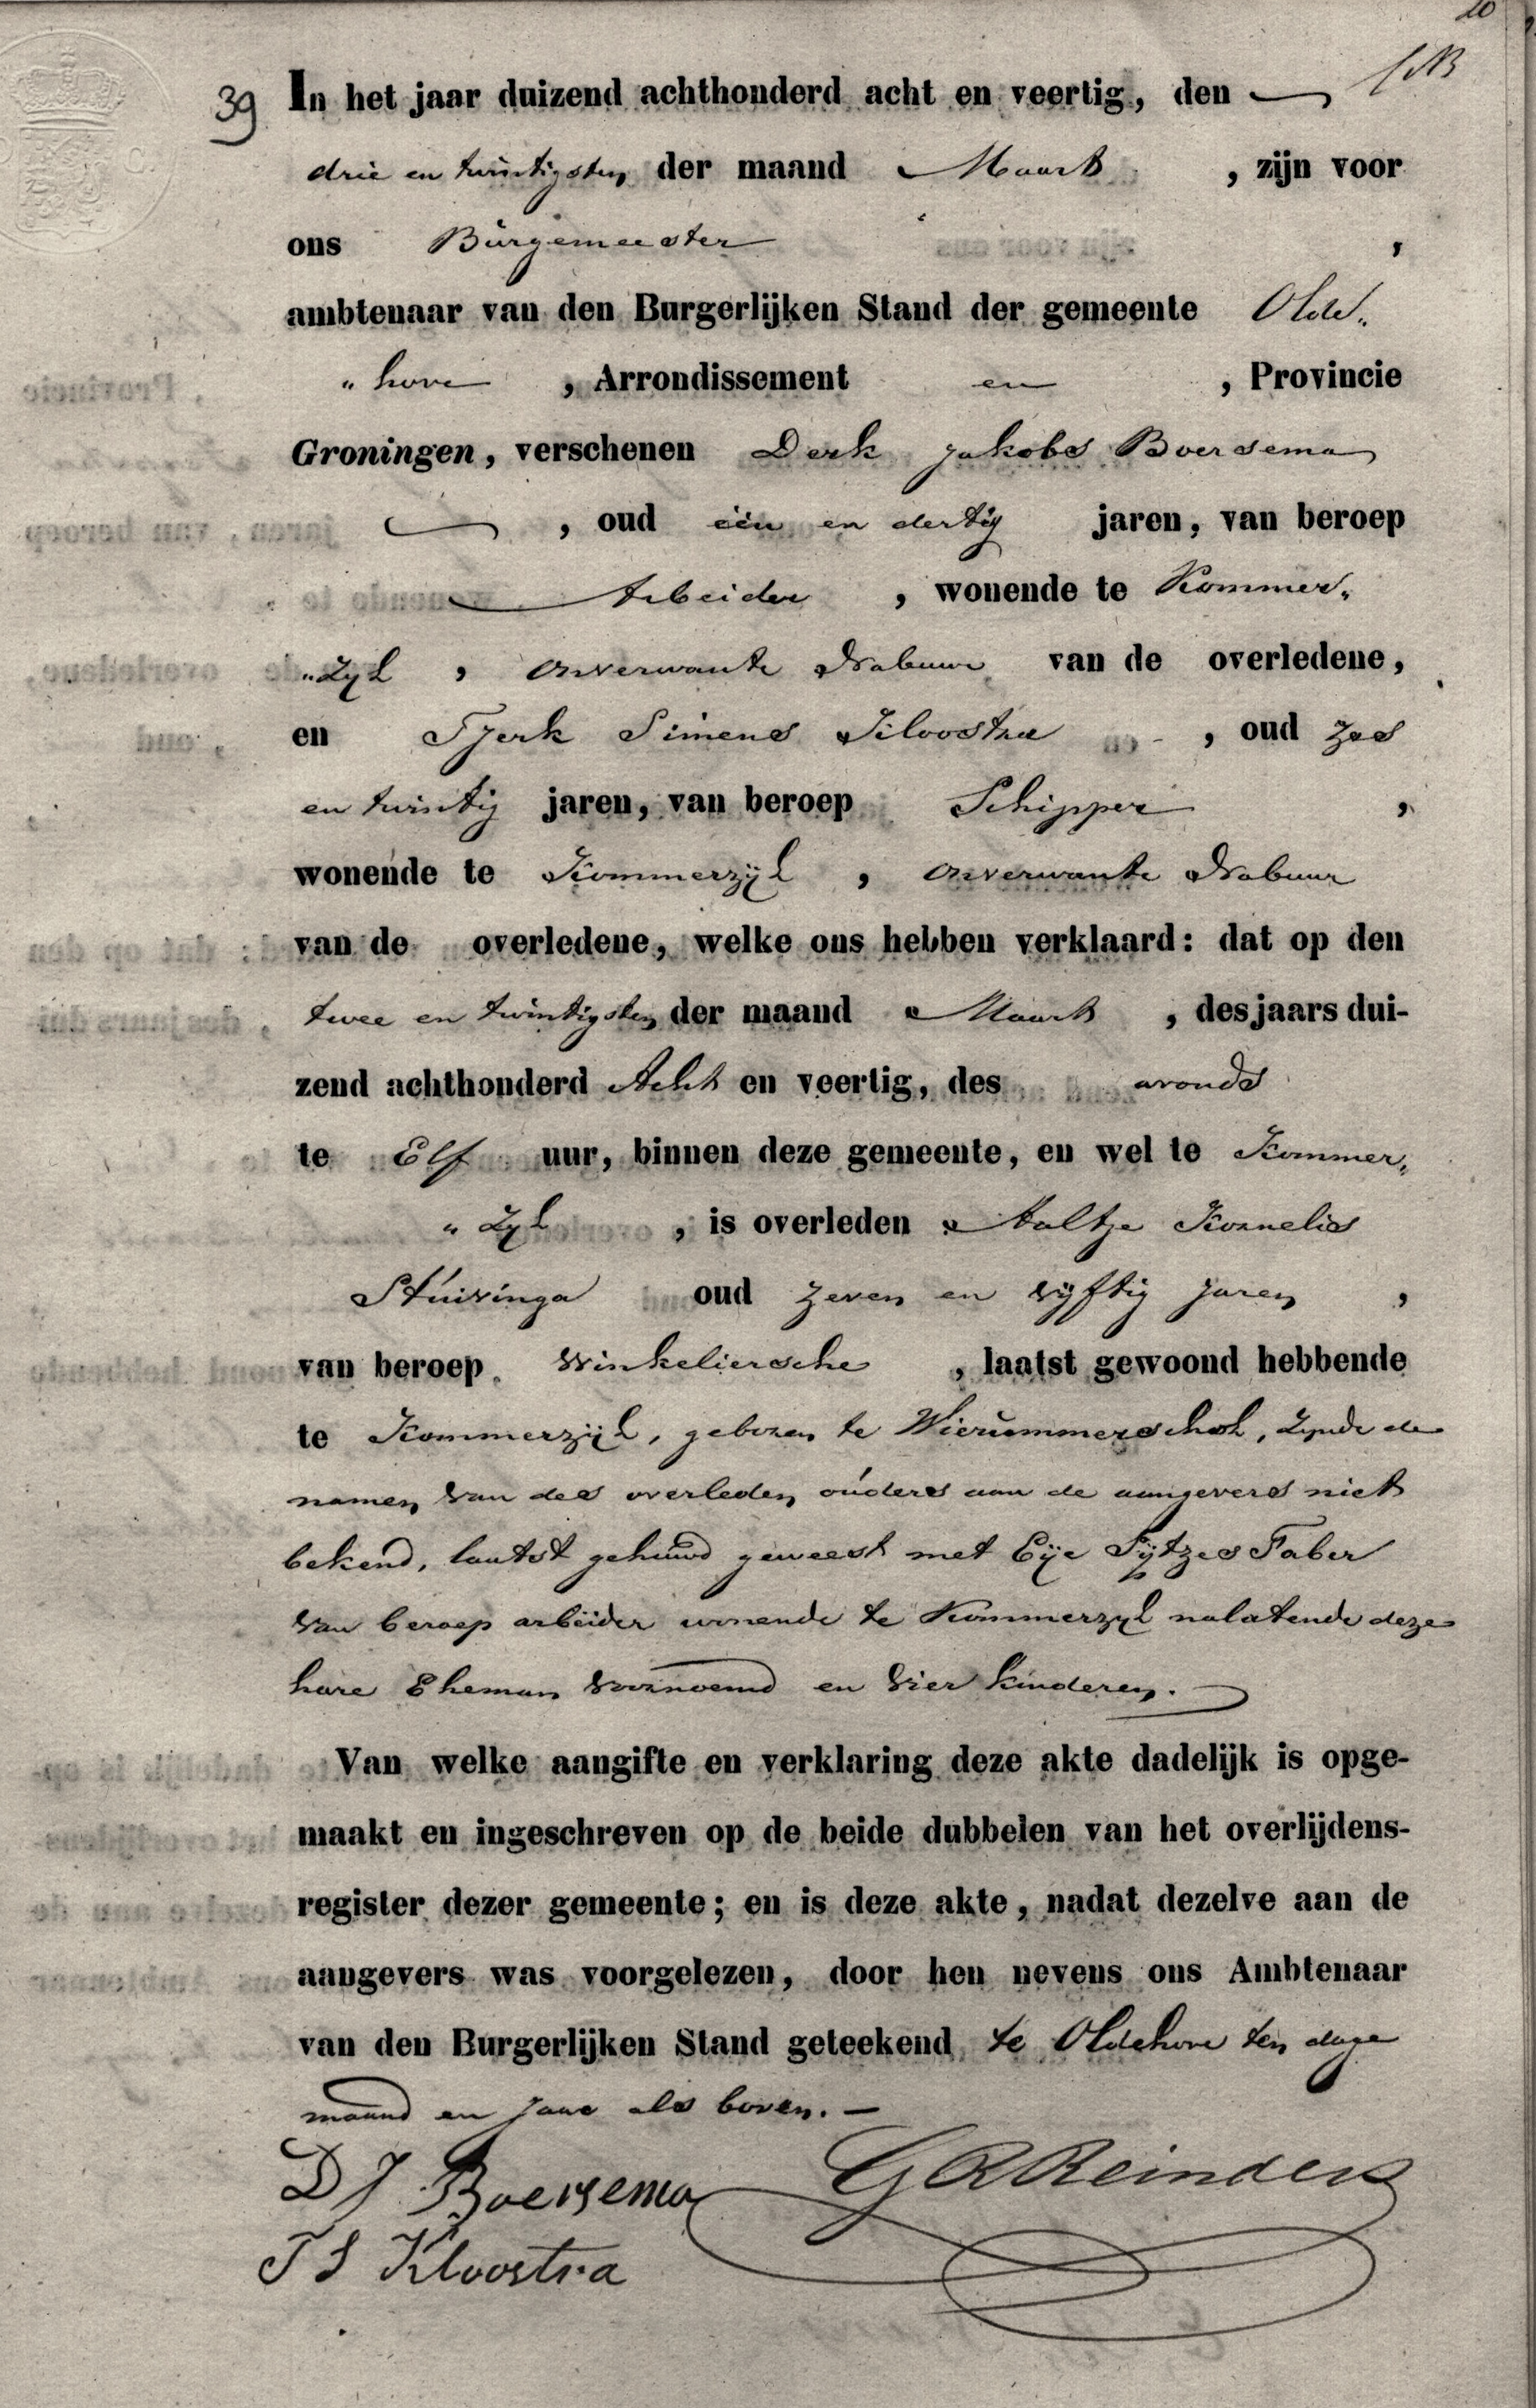 20
39 In het jaar duizend achthonderd acht en veertig, den
drie en twintigsten der maand Maart , zijn voor
ons Burgemeester ,
ambtenaar van den Burgerlijken Stand der gemeente Olde„
„hove , Arrondissement en , Provincie
Groningen, verschenen Derk Jakobs Boersema
, oud één en dertig jaren, van beroep
Arbeider , wonende te Kommer„
„zyl , onverwante Nabuur van de overledene,
en Tjerk Simens Kloostra , oud zes
en twintig jaren, van beroep Schipper ,
wonende te Kommerzijl , onverwante Nabuur
van de overledene, welke ons hebben verklaard: dat op den
twee en twintigsten der maand Maart , des jaars dui-
zend achthonderd Acht en veertig, des avonds
te Elf uur, binnen deze gemeente, en wel te Kommer„
„zyl , is overleden Aaltje Kornelis
Stuivinga oud zeven en vyftig jaren ,
van beroep Winkeliersche , laatst gewoond hebbende
te Kommerzijl, geboren te Wierummerschol, zynde de
namen van des overleden ouders aan de aangevers niet
bekend, laatst gehuwd geweest met Eije Sijtzes Faber
van beroep arbeider wonende te Kommerzyl nalatende deze
hare Eheman voornoemd en vier kinderen.
Van welke aangifte en verklaring deze akte dadelijk is opge-
maakt en ingeschreven op de beide dubbelen van het overlijdens-
register dezer gemeente; en is deze akte, nadat dezelve aan de
aangevers was voorgelezen, door hen nevens ons Ambtenaar
van den Burgerlijken Stand geteekend te Oldehove ten dage
maand en jaar als boven. —
D J Boersema G R Reinders
T S Kloostra